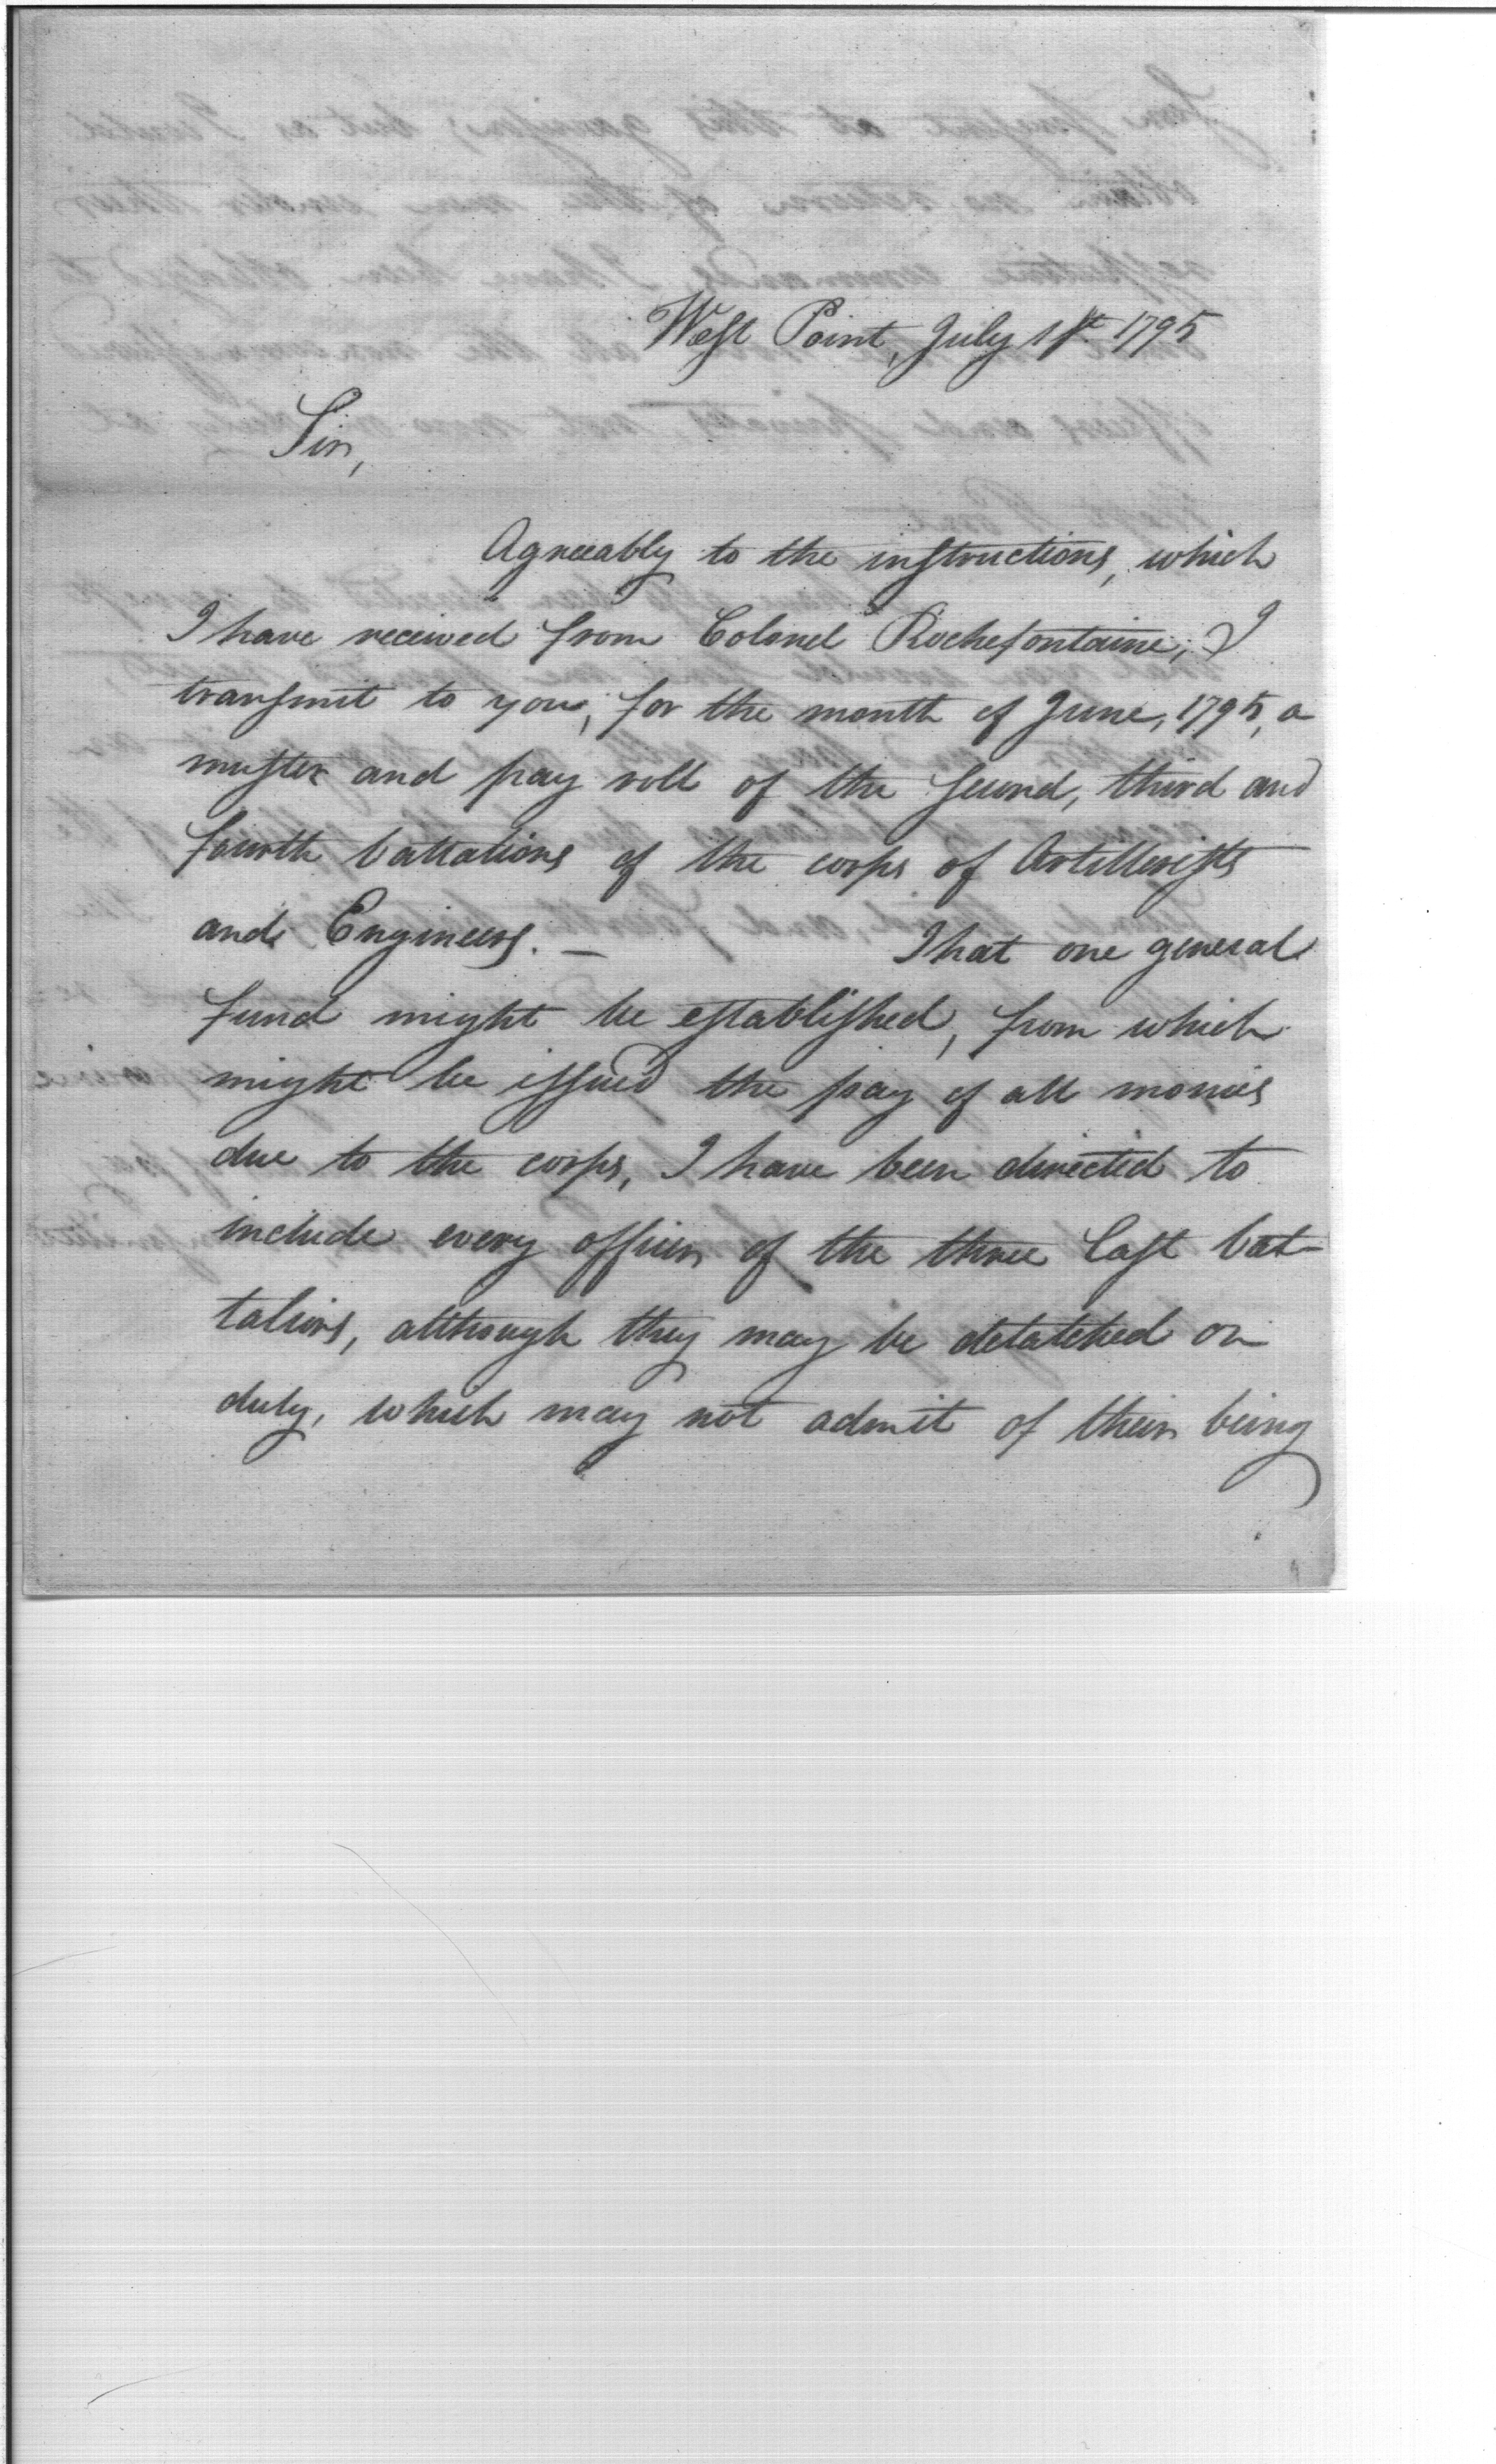 West Point, July 1st 1795
Sir,
Agreeably to the instructions, which
I have received from Colonel Rochefontaine, I
transmit to you, for the month of June, 1795, a
muster and pay roll of the second, third and
fourth battalions of the corps of Artillerists
and Engineers. — That one general
fund might be established, from which
might be issued the pay of all monies
due to the corps, I have been directed to
include every officer of the three last bat-
talions, although they may be detatched on
duty, which may not admit of their being